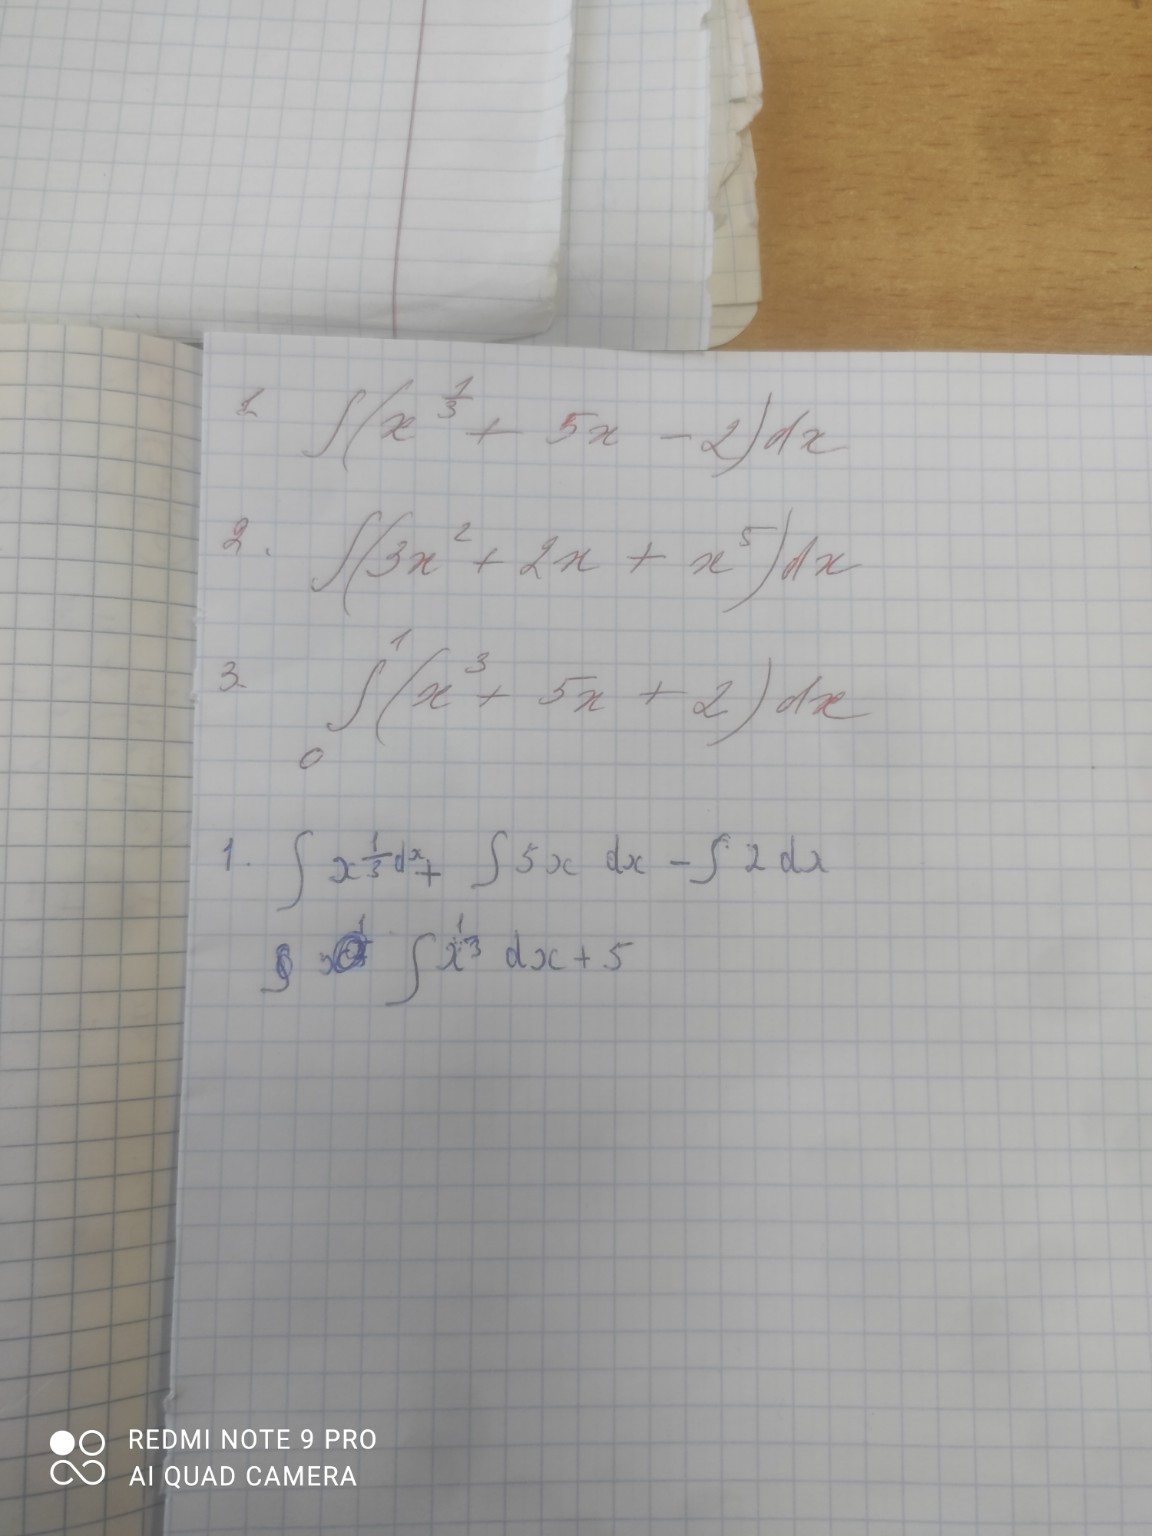 1 ∫(x^{1/3} + 5x - 2)dx
2. ∫(3x² + 2x + x⁵)dx
3 ∫₀¹(x³ + 5x + 2)dx
1. ∫ x^{1/3} dx + ∫ 5x dx - ∫ 2 dx
∫ x^{1/3} dx + 5
REDMI NOTE 9 PRO
AI QUAD CAMERA